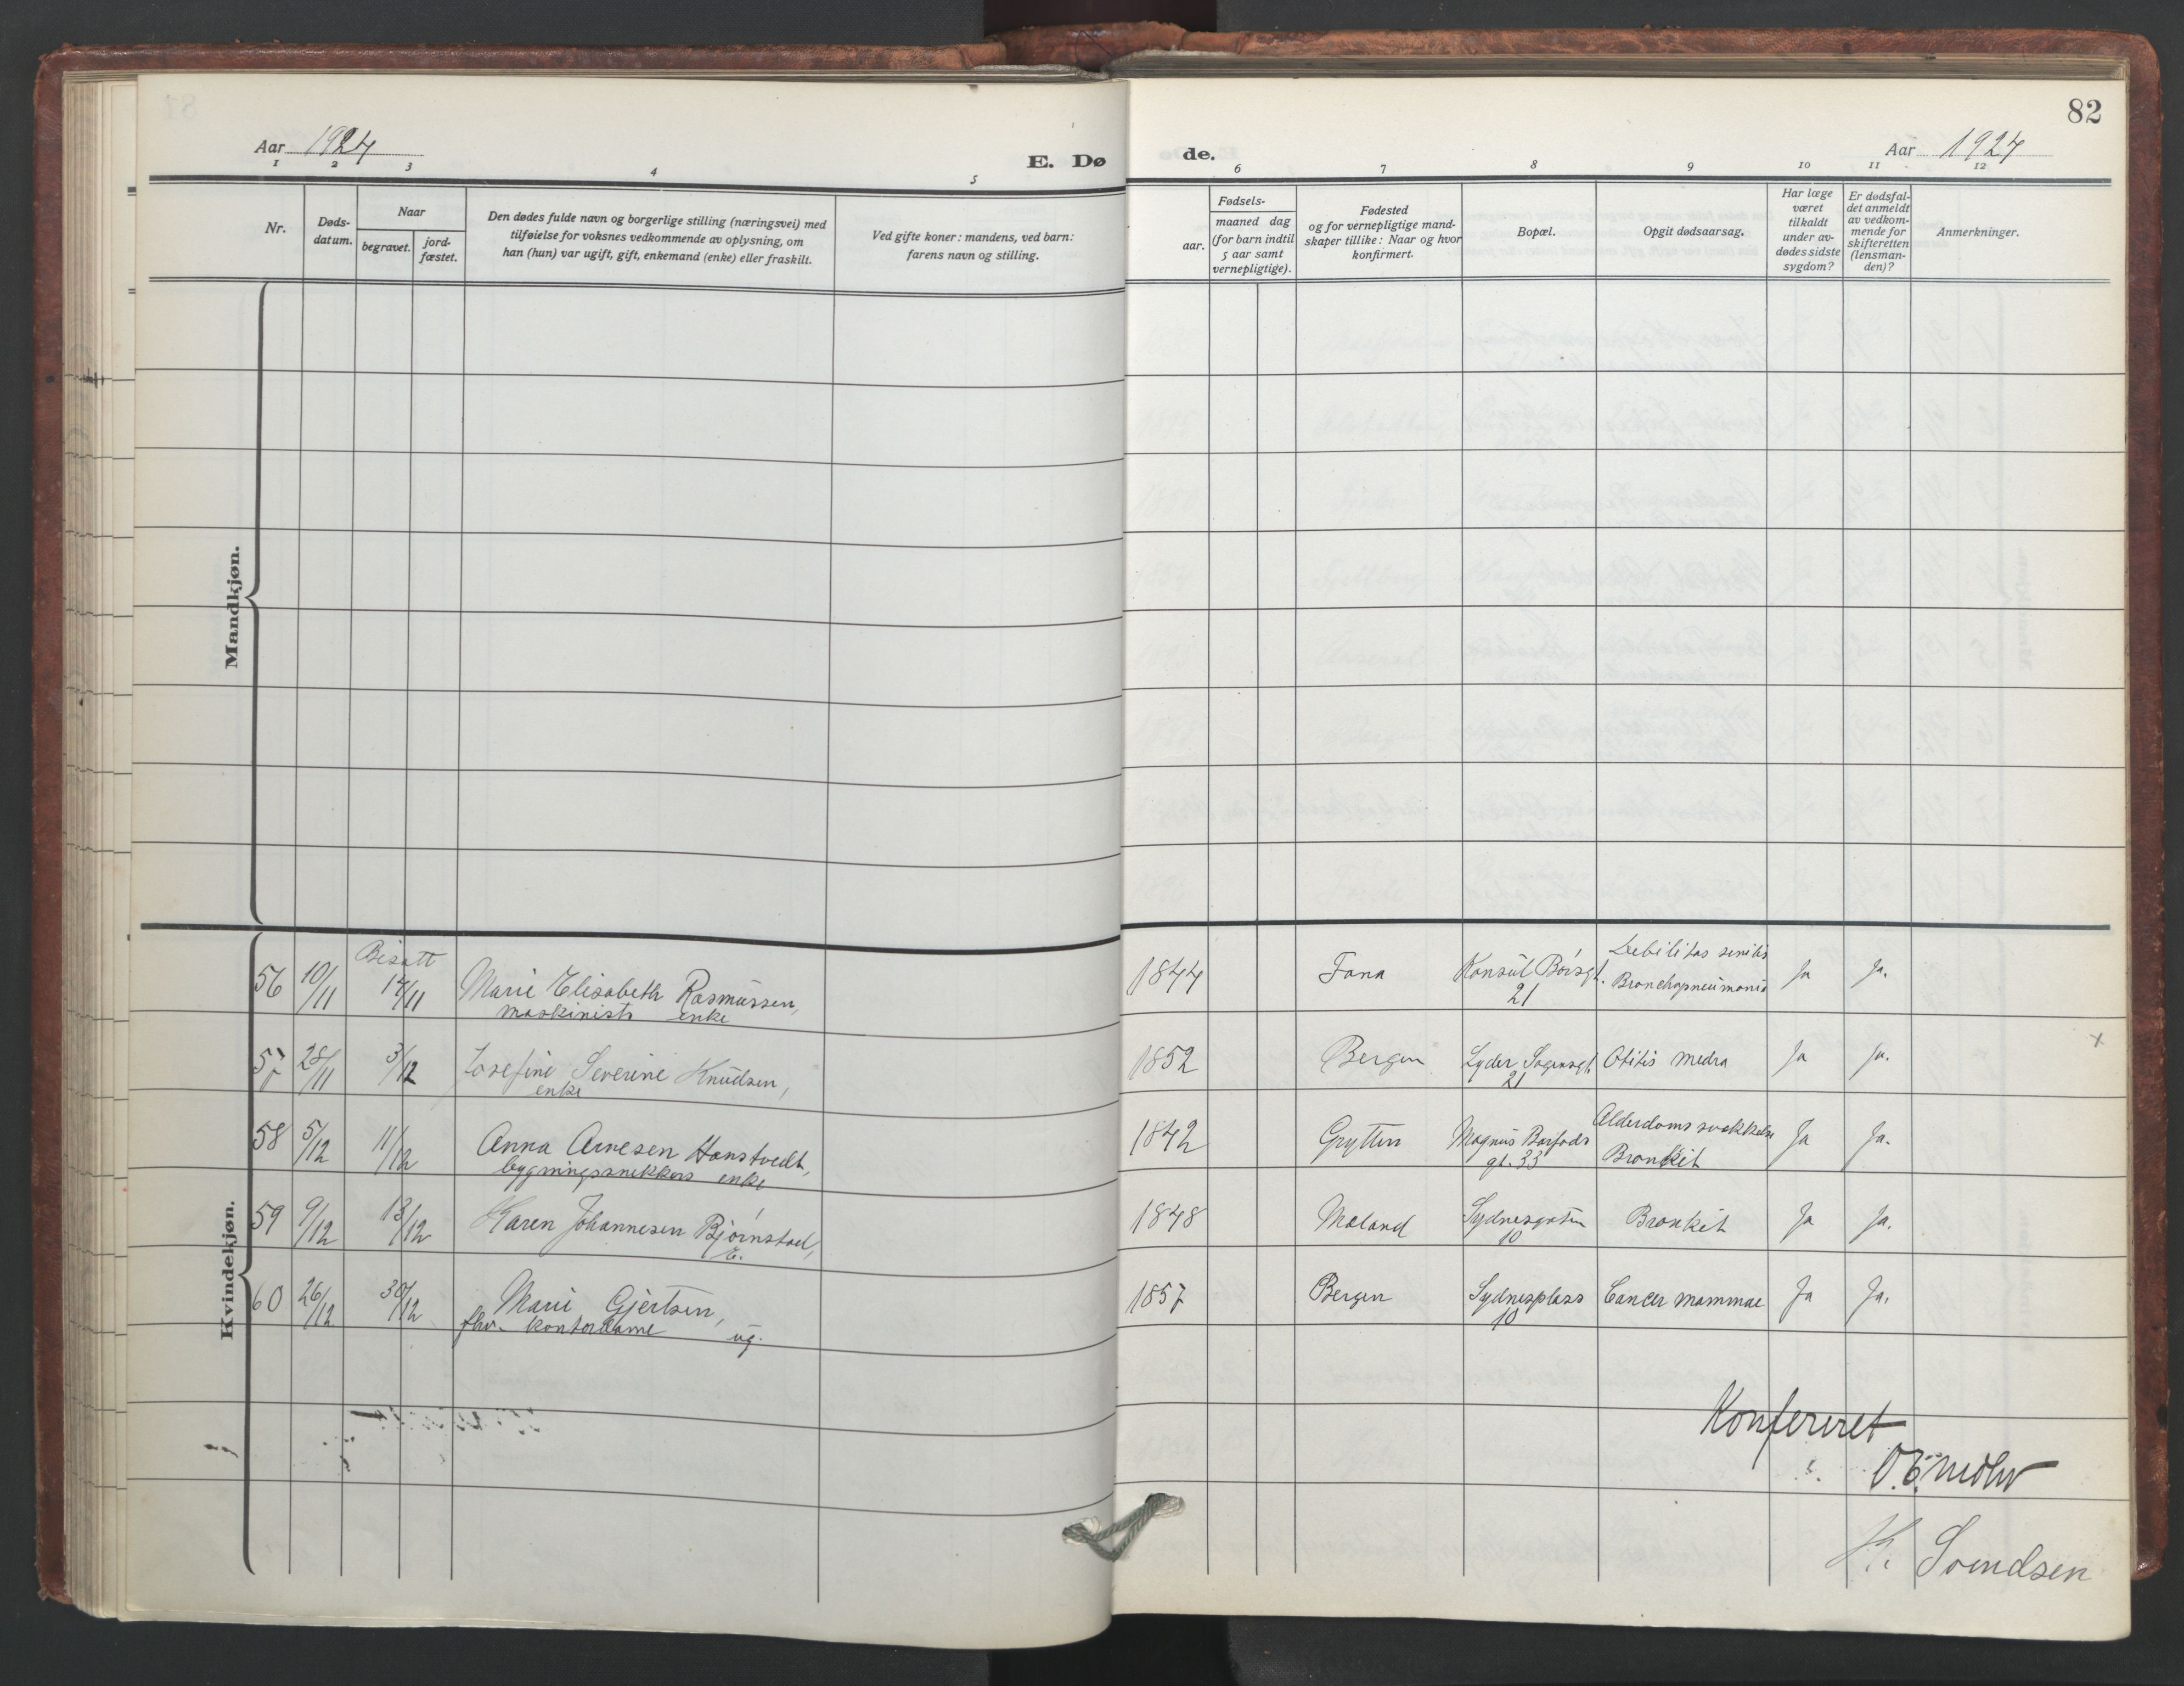 82
Aar 1924
E. Dø de.
Aar 1924
1 2 3 4 5 6 7 8 9 10 11 12
Nr.
Døds-
datum.
Naar
begravet.
jord-
fæstet.
Den dødes fulde navn og borgerlige stilling (næringsvei) med
tilføielse for voksnes vedkommende av oplysning, om
han (hun) var ugift, gift, enkemand (enke) eller fraskilt.
Ved gifte koner: mandens, ved barn:
farens navn og stilling.
Fødsels-
aar.
maaned dag
(for barn indtil
5 aar samt
vernepligtige).
Fødested
og for vernepligtige mand-
skaper tillike: Naar og hvor
konfirmert.
Bopæl.
Opgit dødsaarsag.
Har læge
været
tilkaldt
under av-
dødes sidste
sygdom?
Er dødsfal-
det anmeldt
av vedkom-
mende for
skifteretten
(lensman-
den)?
Anmerkninger.
Mandkjøn.
Kvindekjøn.
Bisatt
56 10/11 14/11 Marie Elisabeth Rasmussen, 1844 Fana Konsul Børsgt. Debilitas senilis Ja Ja.
maskinists enke 21 Bronchopneumonia
57 28/11 3/12 Josefine Severine Knudsen, 1852 Bergen Lyder Sagensgt. Otitis media Ja Ja. x
enke 21
58 5/12 11/12 Anna Arnesen Hanstvedt, 1842 Grytten Magnus Barfods Alderdomssvekkelse Ja Ja.
bygningssnekkers enke gt. 33 Bronkit
59 9/12 13/12 Karen Johannesen Bjørnstad, 1848 Moland Sydnesgaten Bronkit Ja Ja.
E. 10
60 26/12 30/12 Marie Gjertsen, 1857 Bergen Sydnesplass Cancer mammae Ja Ja.
fhv. kontordame ug. 10
Konfereret
Svendsen